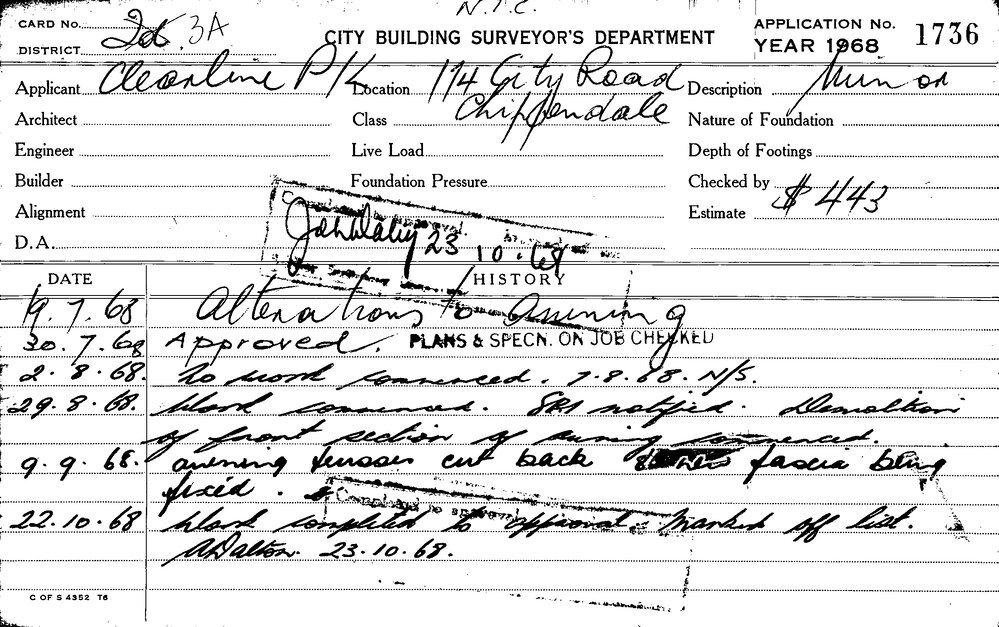 N.T.C.
CARD No. 
DISTRICT 3A
CITY BUILDING SURVEYOR'S DEPARTMENT
APPLICATION No. 1736
YEAR 1968
Applicant Cleanline P/L Location 114 City Road Description Minor
Chippendale
Architect Class Nature of Foundation
Engineer Live Load Depth of Footings
Builder Foundation Pressure Checked by
Alignment Estimate $443
D.A. 23 10.68
DATE HISTORY
19.7.68 Alterations to Awning
30.7.68 Approved. PLANS & SPECN. ON JOB CHECKED
2.8.68. No work commenced. 7.8.68. N/S.
29.8.68. Work commenced. notified. Demolition
of front section of awning commenced.
9.9.68. awning trusses cut back fascia being
fixed.
22.10.68 Work completed to approval. Marked off list.
ADalton. 23.10.68.
C OF S 4352 T6